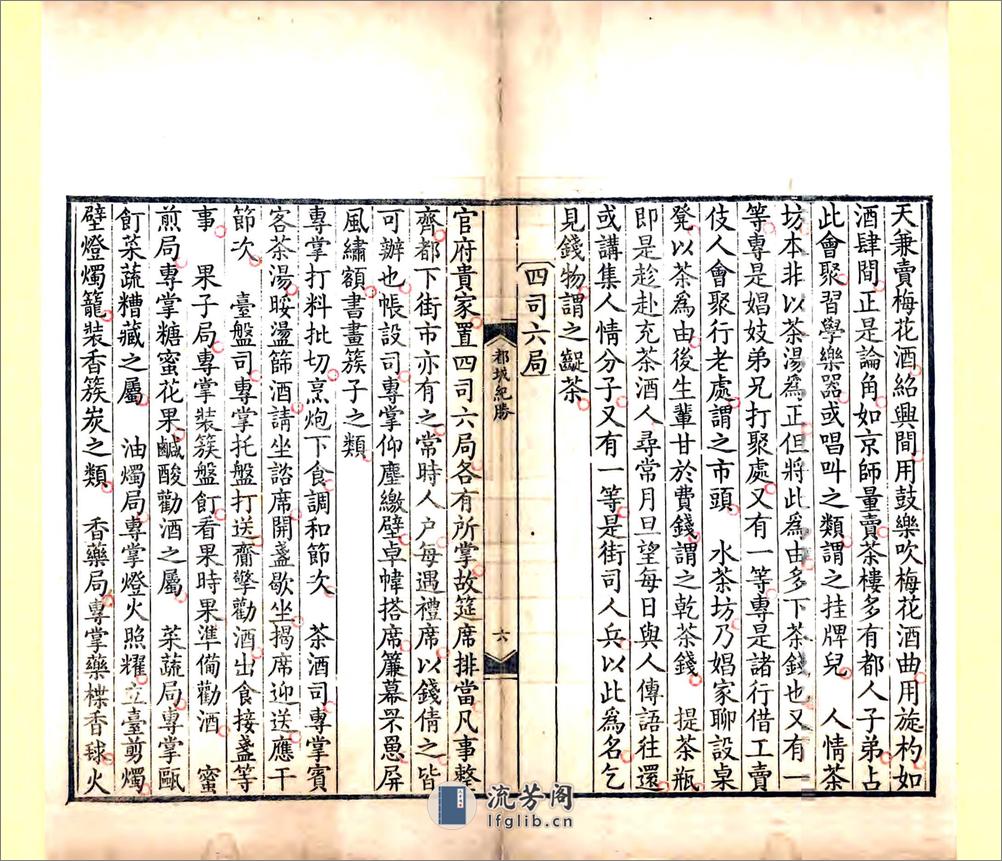 天兼賣梅花酒紹興間用鼓樂吹梅花酒曲用旋杓如
酒肆間正是論角如京師量賣茶樓多有都人子弟占
此會聚習學樂器或唱叫之類謂之挂牌兒　人情茶
坊本非以茶湯爲正但將此爲由多下茶錢也又有一
等專是娼妓弟兄打聚處又有一等專是諸行借工賣
伎人會聚行老處謂之市頭　水茶坊乃娼家聊設桌
凳以茶爲由後生輩甘於費錢謂之乾茶錢　提茶瓶
即是趁赴充茶酒人尋常月旦望每日與人傳語往還
或講集人情分子又有一等是街司人兵以此爲名乞
見錢物謂之齪茶
四司六局
都城紀勝
六
官府貴家置四司六局各有所掌故筵席排當凡事整
齊都下街市亦有之常時人户每遇禮席以錢倩之皆
可辦也帳設司專掌仰塵繳壁卓幃搭席簾幕罘罳屏
風繡額書畫簇子之類
專掌打料批切烹炮下食調和節次　茶酒司專掌賓
客茶湯暖盪篩酒請坐諮席開盞歇坐揭席迎送應干
節次　臺盤司專掌托盤打送齎擎勸酒出食接盞等
事　果子局專掌裝簇盤飣看果時果準備勸酒　蜜
煎局專掌糖蜜花果鹹酸勸酒之屬　菜蔬局專掌甌
飣菜蔬糟藏之屬　油燭局專掌燈火照耀立臺剪燭
壁燈燭籠裝香簇炭之類　香藥局專掌藥楪香毬火
流芳阁
lfglib.cn